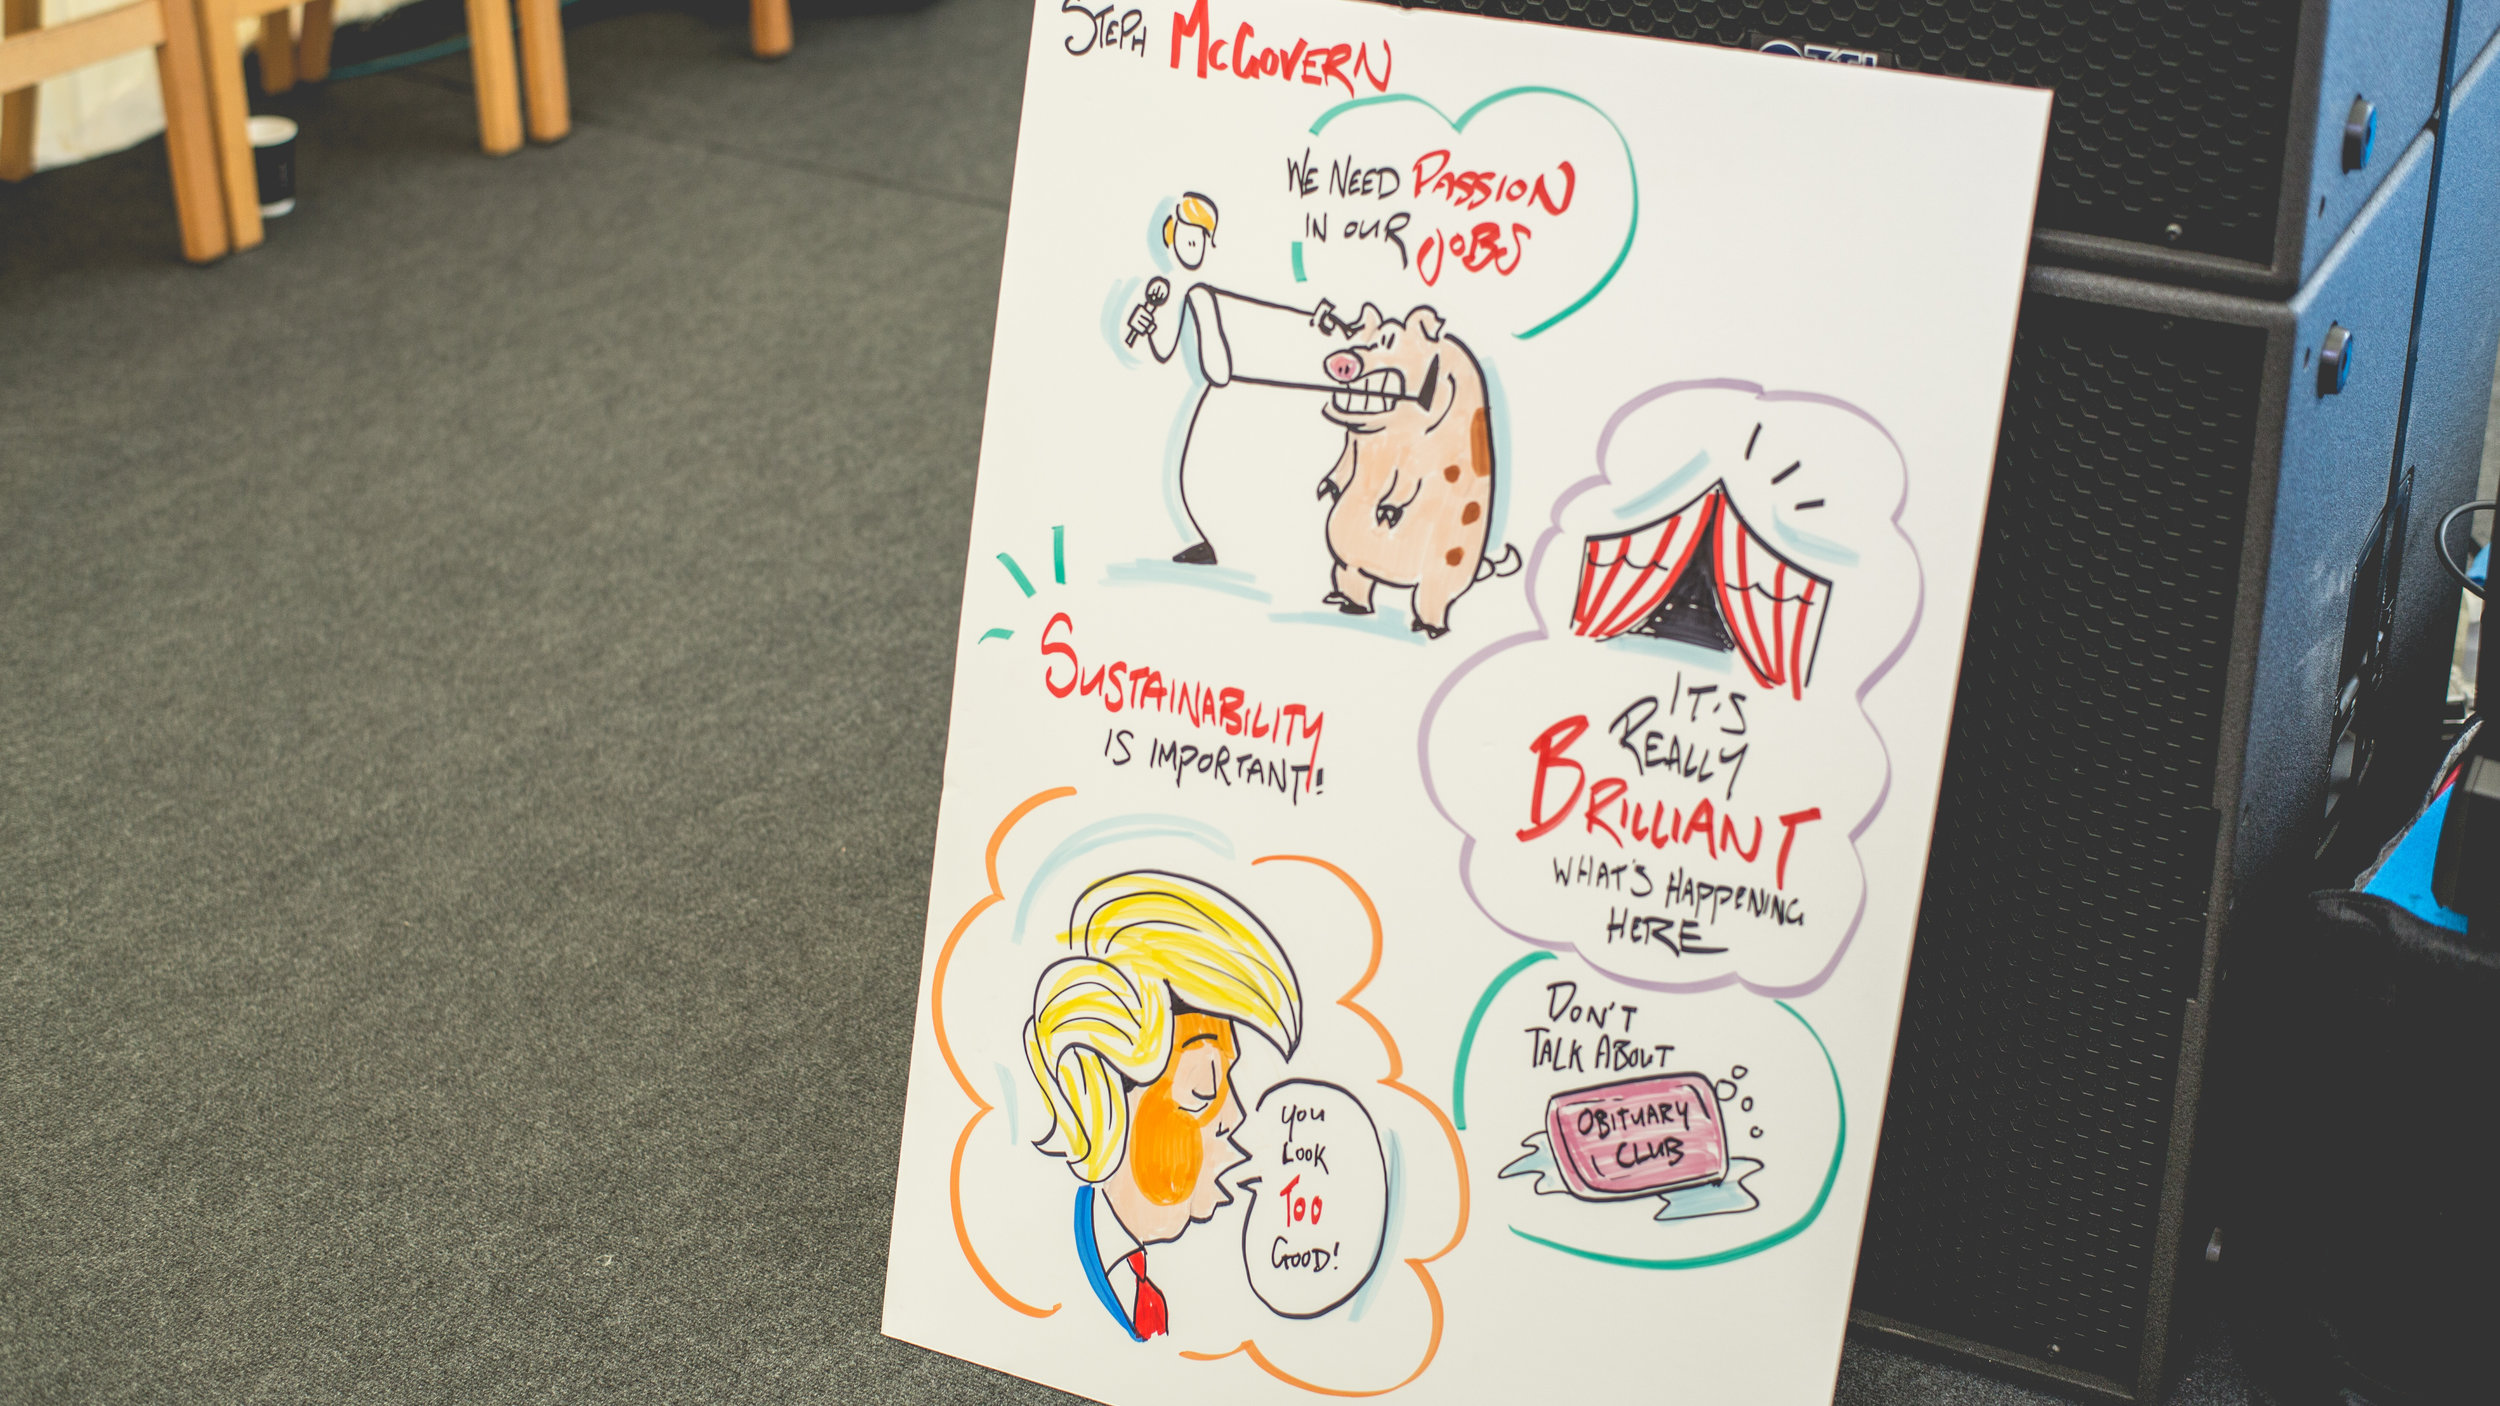 STEPH McGOVERN
WE NEED PASSION
IN OUR JOBS
SUSTAINABILITY
IS IMPORTANT!
IT'S
REALLY
BRILLIANT
WHAT'S HAPPENING
HERE
YOU
LOOK
TOO
GOOD!
DON'T
TALK ABOUT
OBITUARY
CLUB